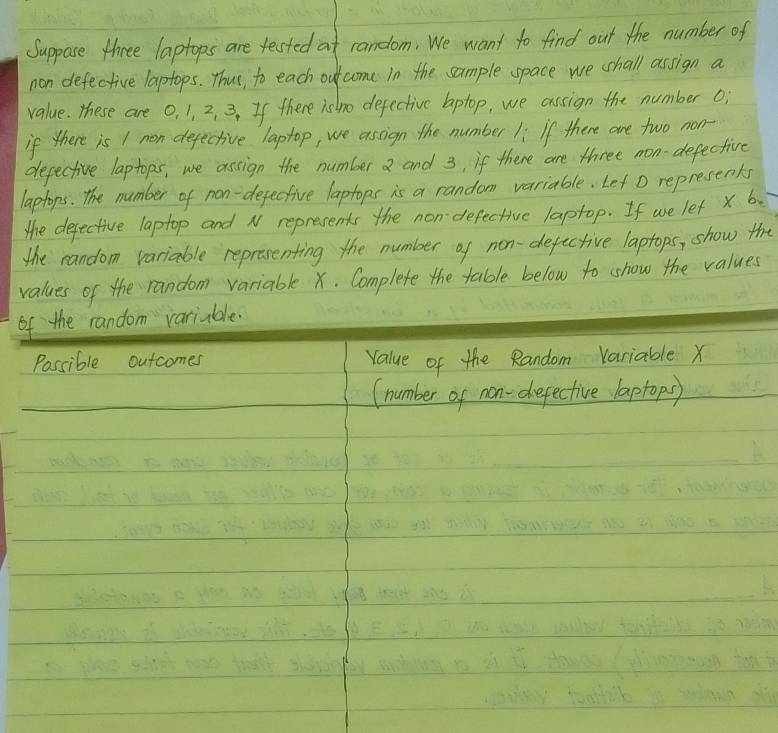 Suppose three laptops are tested at random. We want to find out the number of
non defective laptops. Thus, to each outcome in the sample space we shall assign a
value. These are 0, 1, 2, 3. If there is no defective laptop, we assign the number 0;
if there is 1 non defective laptop, we assign the number 1; if there are two non-
defective laptops, we assign the number 2 and 3, if there are three non-defective
laptops. The number of non-defective laptops is a random variable. Let D represents
the defective laptop and N represents the non-defective laptop. If we let X be
the random variable representing the number of non-defective laptops, show the
values of the random variable X. Complete the table below to show the values
of the random variable.
Possible outcomes
Value of the Random Variable X
(number of non-defective laptops)